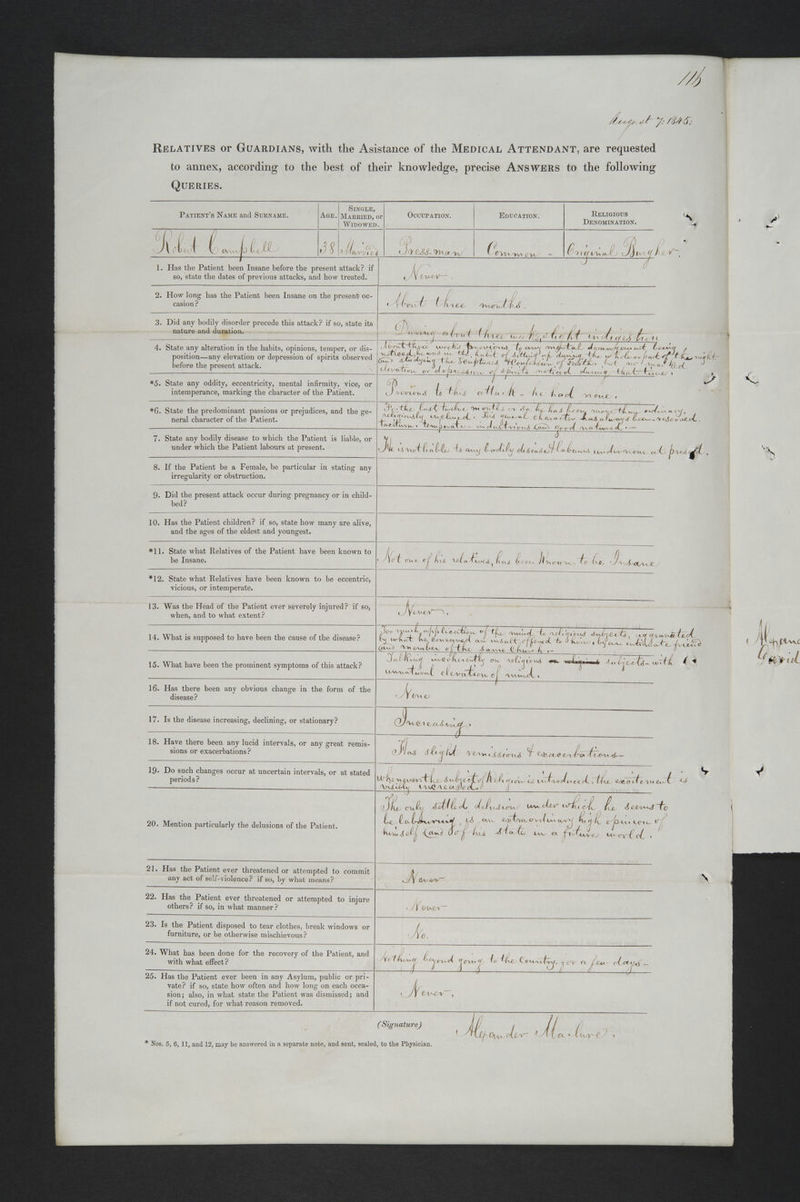 116
August 7. 1845.
RELATIVES or GUARDIANS, with the Asistance of the MEDICAL ATTENDANT, are requested
to annex, according to the best of their knowledge, precise ANSWERS to the following
QUERIES.
PATIENT'S NAME and SURNAME.
AGE.
SINGLE, MARRIED, or WIDOWED.
OCCUPATION.
EDUCATION.
RELIGIOUS DENOMINATION.
Robert Campbell
38
Married
Pressman
Common
Original Burgher
1. Has the Patient been Insane before the present attack? if
so, state the dates of previous attacks, and how treated.
Never
2. How long has the Patient been Insane on the present oc-
casion?
About three months.
3. Did any bodily disorder precede this attack? if so, state its
nature and duration.
During about three weeks slight indigestion
4. State any alteration in the habits, opinions, temper, or dis-
position—any elevation or depression of spirits observed
before the present attack.
About three weeks previous to any mental derangement being
noticed he was in the habit of sitting up during the whole or part of the night
and studying the Scriptures & Confession of Faith, but no marked
elevation or depression of spirits noticed during that time.
*5. State any oddity, eccentricity, mental infirmity, vice, or
intemperance, marking the character of the Patient.
Previous to this attack he had none.
*6. State the predominant passions or prejudices, and the ge-
neral character of the Patient.
For the last twelve months or so he has been more than ordinary
religiously inclined. His general character has always been reserved
taciturn, temperate industrious and good natured.
7. State any bodily disease to which the Patient is liable, or
under which the Patient labours at present.
He is not liable to any bodily disease & labours under none at present.
8. If the Patient be a Female, be particular in stating any
irregularity or obstruction.
9. Did the present attack occur during pregnancy or in child-
bed?
10. Has the Patient children? if so, state how many are alive,
and the ages of the eldest and youngest.
*11. State what Relatives of the Patient have been known to
be Insane.
Not one of his relatives, has been known to be Insane
*12. State what Relatives have been known to be eccentric,
vicious, or intemperate.
13. Was the Head of the Patient ever severely injured? if so,
when, and to what extent?
Never.
14. What is supposed to have been the cause of the disease?
Too much application of the mind to religious subjects, aggravated
by what he conceived an insult offered to him by an intimate friend
and member of the same Church
15. What have been the prominent symptoms of this attack?
Talking incoherently on religious subjects with
unnatural elevation of mind.
16. Has there been any obvious change in the form of the
disease?
None
17. Is the disease increasing, declining, or stationary?
Increasing.
18. Have there been any lucid intervals, or any great remis-
sions or exacerbations?
Has slight remissions & exacerbations
19. Do such changes occur at uncertain intervals, or at stated
periods?
Whenever the subject of Religion is introduced, the excitement is
visibly increased.
20. Mention particularly the delusions of the Patient.
The only settled delusion under which he seems to
be labouring, is an extraordinary high opinion of
himself and of his state in a future world.
21. Has the Patient ever threatened or attempted to commit
any act of self-violence? if so, by what means?
Never
22. Has the Patient ever threatened or attempted to injure
others? if so, in what manner?
Never
23. Is the Patient disposed to tear clothes, break windows or
furniture, or be otherwise mischievous?
No.
24. What has been done for the recovery of the Patient, and
with what effect?
Nothing beyond going to the Country for a few days
25. Has the Patient ever been in any Asylum, public or pri-
vate? if so, state how often and how long on each occa-
sion; also, in what state the Patient was dismissed; and
if not cured, for what reason removed.
Never.
(Signature)
Alexander Maclure.
* Nos. 5, 6, 11, and 12, may be answered in a separate note, and sent, sealed, to the Physician.